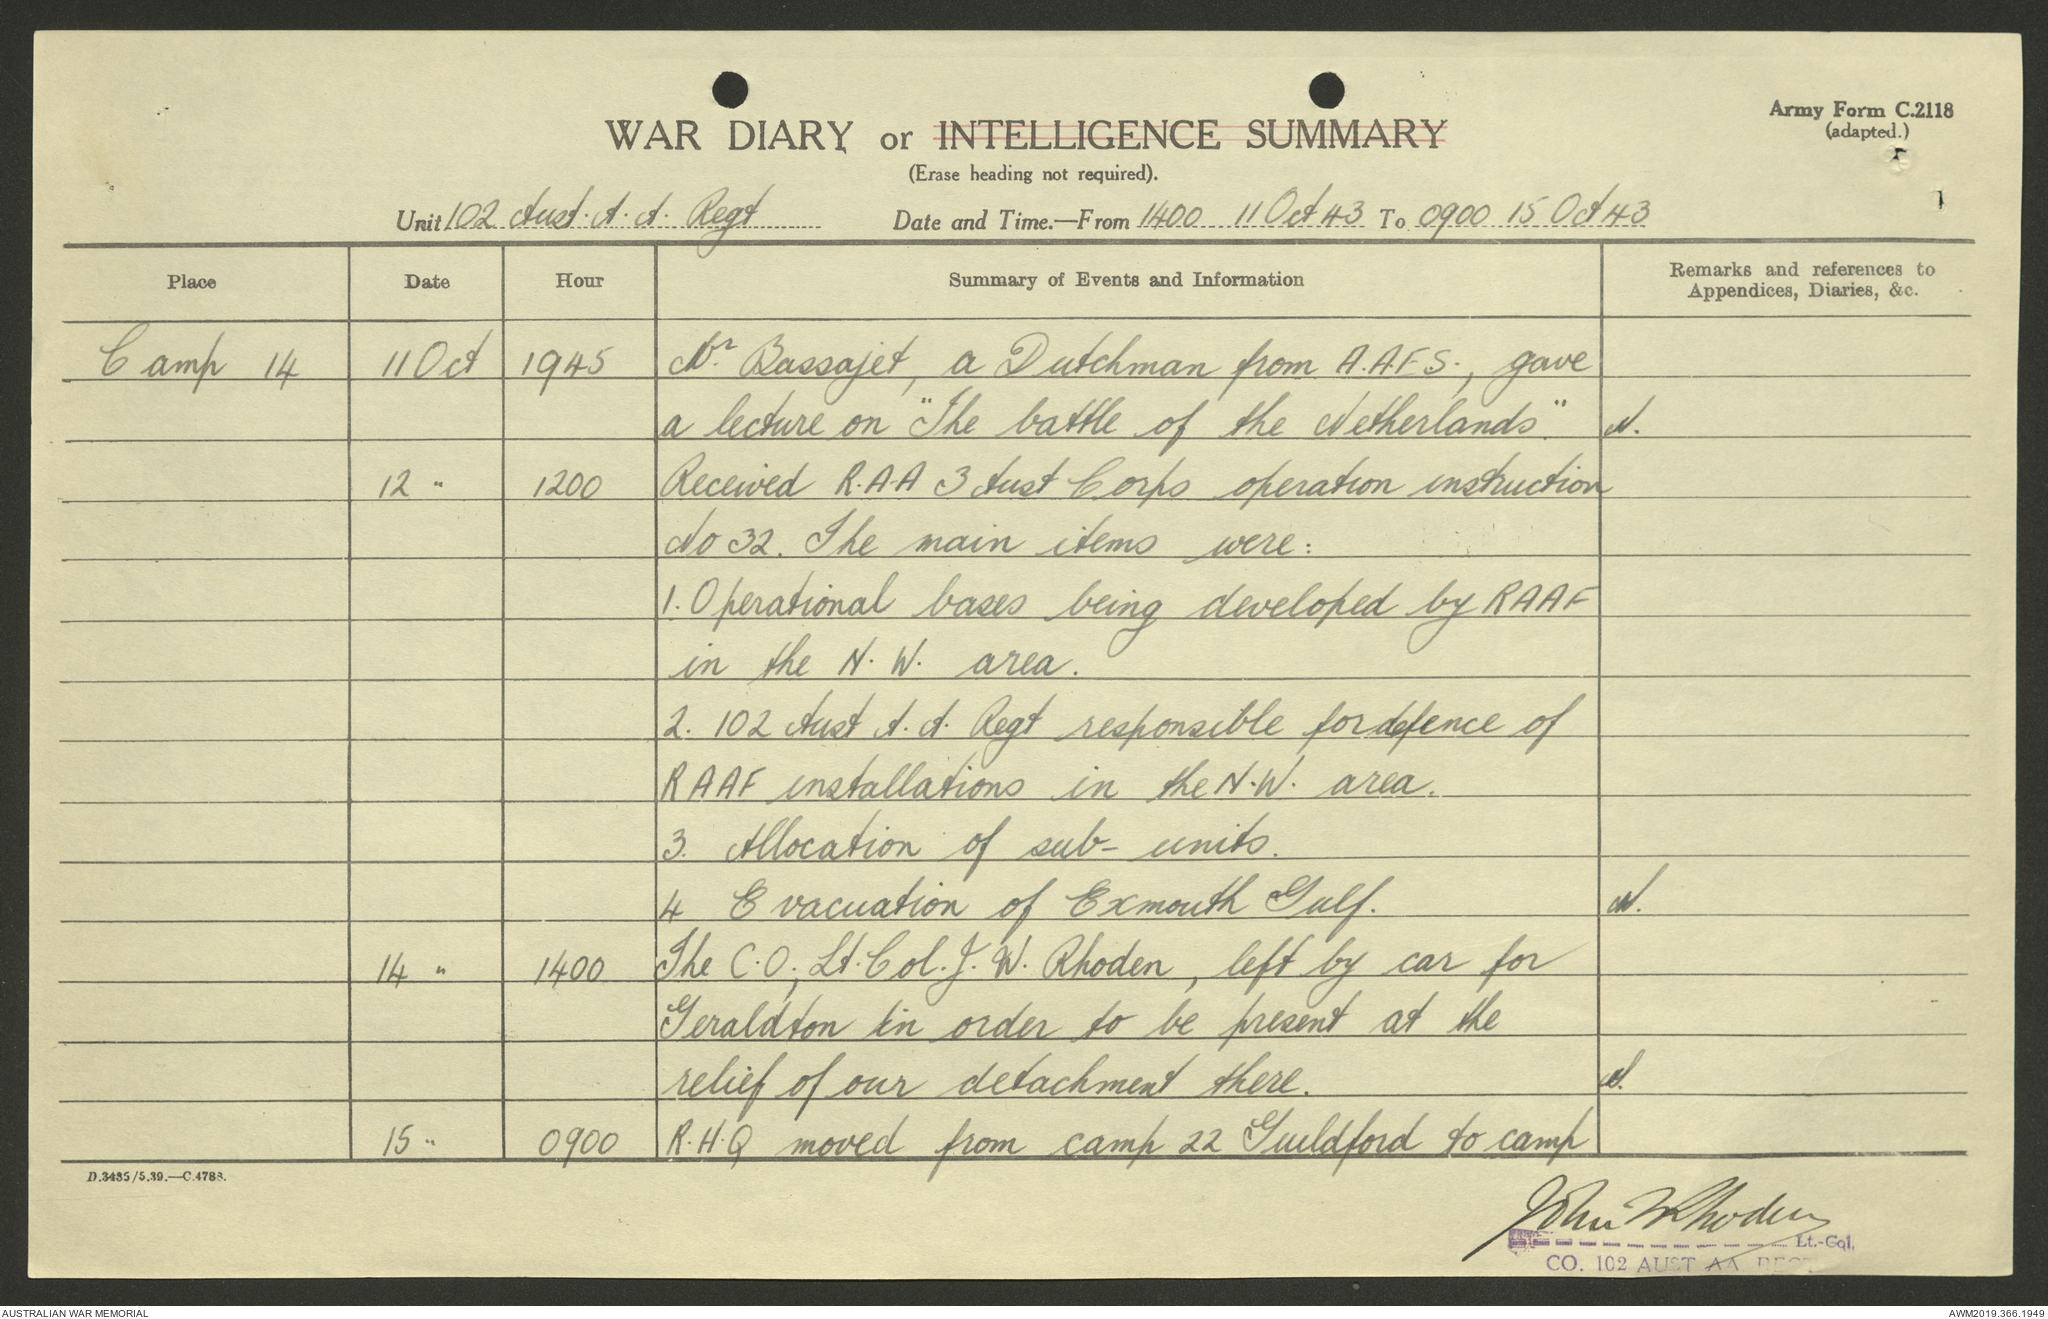 Army Form C.2118
(adapted.)
WAR DIARY or INTELLIGENCE SUMMARY
(Erase heading not required).
1
Unit 102 Aust. A. A. Regt Date and Time.—From 1400 11 Oct 43 To 0900 15 Oct 43
Place Date Hour Summary of Events and Information Remarks and references to Appendices, Diaries, &c.
Camp 14 11 Oct 1945 Mr Bassajet, a Dutchman from A.A.F.S., gave
a lecture on "The battle of the Netherlands".
12 " 1200 Received R.A.A 3 Aust Corps operation instruction
No 32. The main items were:
1. Operational bases being developed by RAAF
in the N. W. area.
2. 102 Aust A. A. Regt responsible for defence of
RAAF installations in the N.W. area.
3. Allocation of sub-units.
4 Evacuation of Exmouth Gulf.
14 " 1400 The C.O., Lt. Col. J. W. Rhoden, left by car for
Geraldton in order to be present at the
relief of our detachment there.
15 " 0900 R.H.Q moved from camp 22 Guildford to camp
D.3435/5.39.—C.4788.
John W Rhoden
Lt.-Col.
CO. 102 AUST AA. REGT
AUSTRALIAN WAR MEMORIAL AWM2019.366.1949